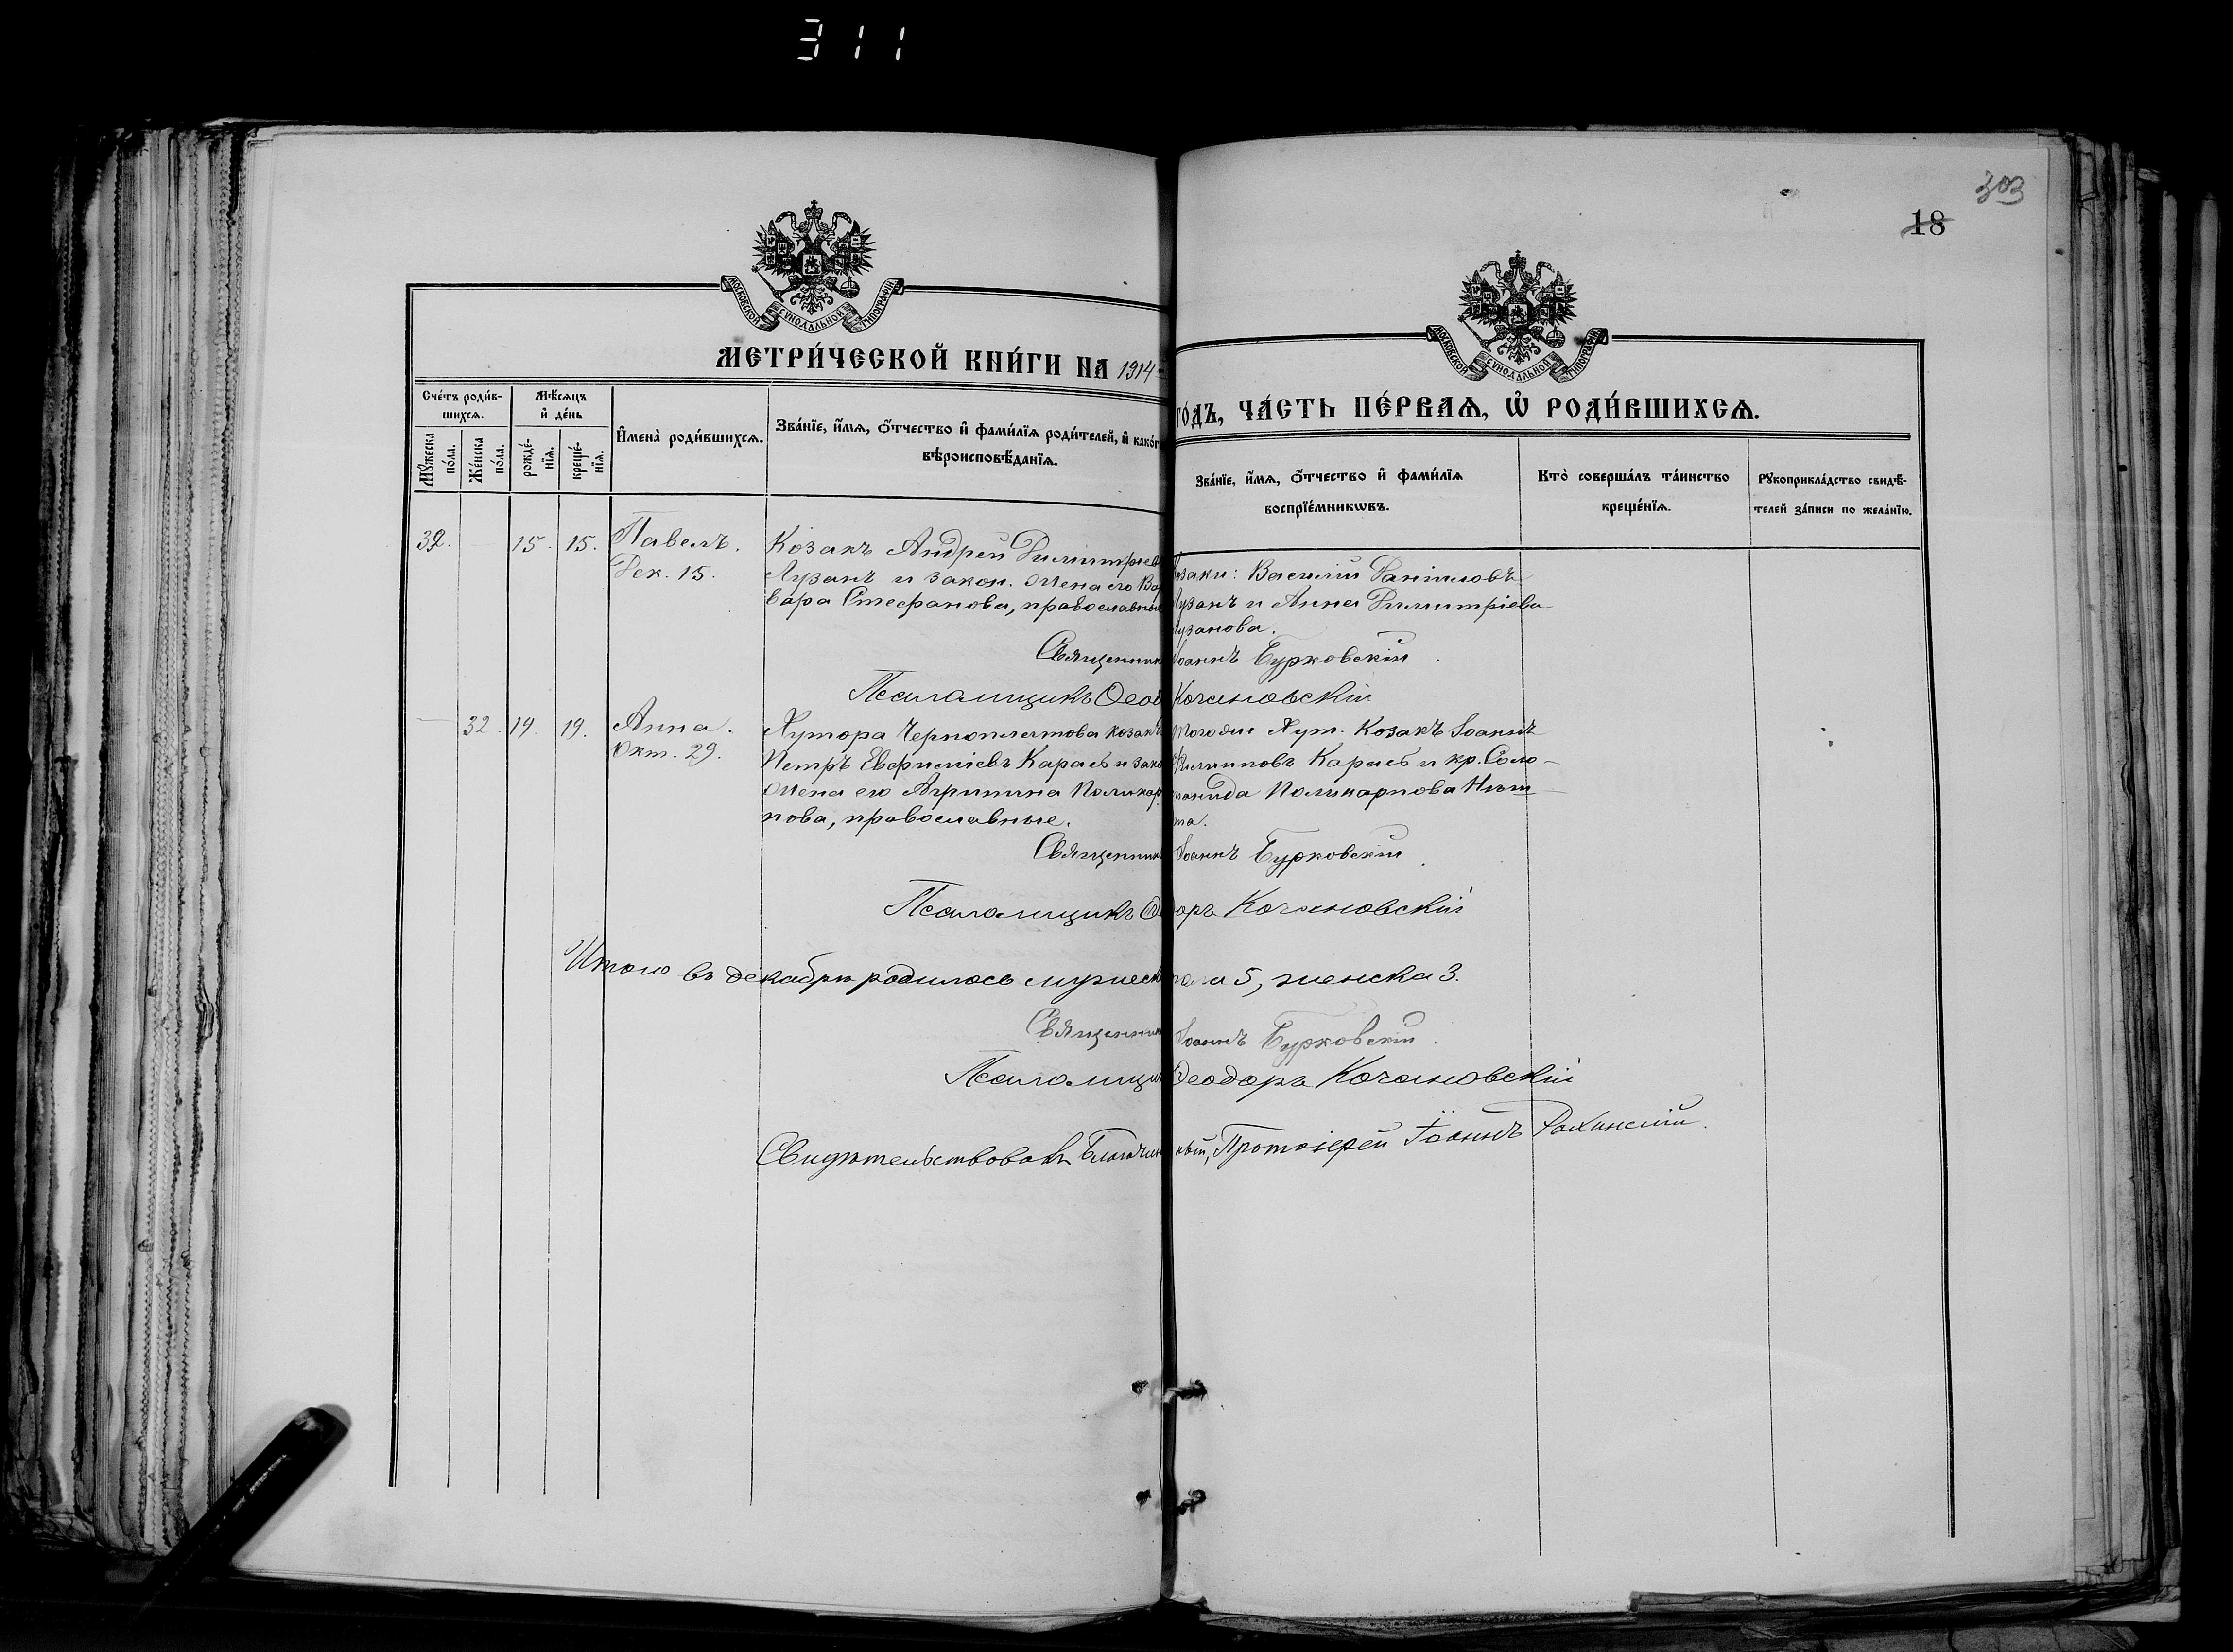 311
303
18
МОСКОВСКОЙ СѴНОДАЛЬНОЙ ТИПОГРАФІИ
МОСКОВСКОЙ СѴНОДАЛЬНОЙ ТИПОГРАФІИ
МЕТРИ́ЧЕСКОЙ КНИ́ГИ НА 1914
ГО́ДЪ, ЧА́СТЬ ПЕ́РВАѦ, Ѽ РОДИ́ВШИХСѦ.
Сче́тъ роди́в-
шихсѧ.
Мѣ́сѧцъ
и҆ де́нь
Мꙋ́жеска
по́ла.
Же́нска
по́ла.
рожде́-
нїѧ.
креще́-
нїѧ.
И҆мена̀ роди́вшихсѧ.
Зва́нїе, и҆́мѧ, ѻ҆́тчество и҆ фами́лїѧ роди́телей, и҆ како́г
вѣроисповѣ́данїѧ.
Зва́нїе, и҆́мѧ, ѻ҆́тчество и҆ фами́лїѧ
воспрїе́мникѡвъ.
Кто̀ соверша́лъ та́инство
креще́нїѧ.
Рꙋкоприкла́дство свидѣ́-
телей за́писи по жела́нїю.
32. — 15. 15. Павелъ. Козакъ Андрей Димитріев
Дек. 15. Лузанъ и закон. жена его Вар
вара Стефанова, православные
озаки: Василій Даніиловъ
Лузанъ и Анна Димитріева
Лузанова.
Священник Іоаннъ Бурковскій.
Псаломщикъ Ѳеод Кочановскій
— 32. 19. 19. Анна. Хутора Черноплатова козакъ
Окт. 29. Петръ Евфиміевъ Карась и зако
жена его Агрипина Поликар
пова, православные.
того же Хут. Козакъ Іоаннъ
Филиповъ Карась и кр. Соло-
монида Поликарпова
та.
Священник Іоаннъ Бурковскій.
Псаломщикъ Ѳеодоръ Кочановскій
Итого въ декабрѣ родилось мужеска 5, женска 3.
Священник Іоаннъ Бурковскій.
Псаломщик Ѳеодоръ Кочановскій
Свидѣтельствовалъ Благочинный, Протоіерей Іоаннъ